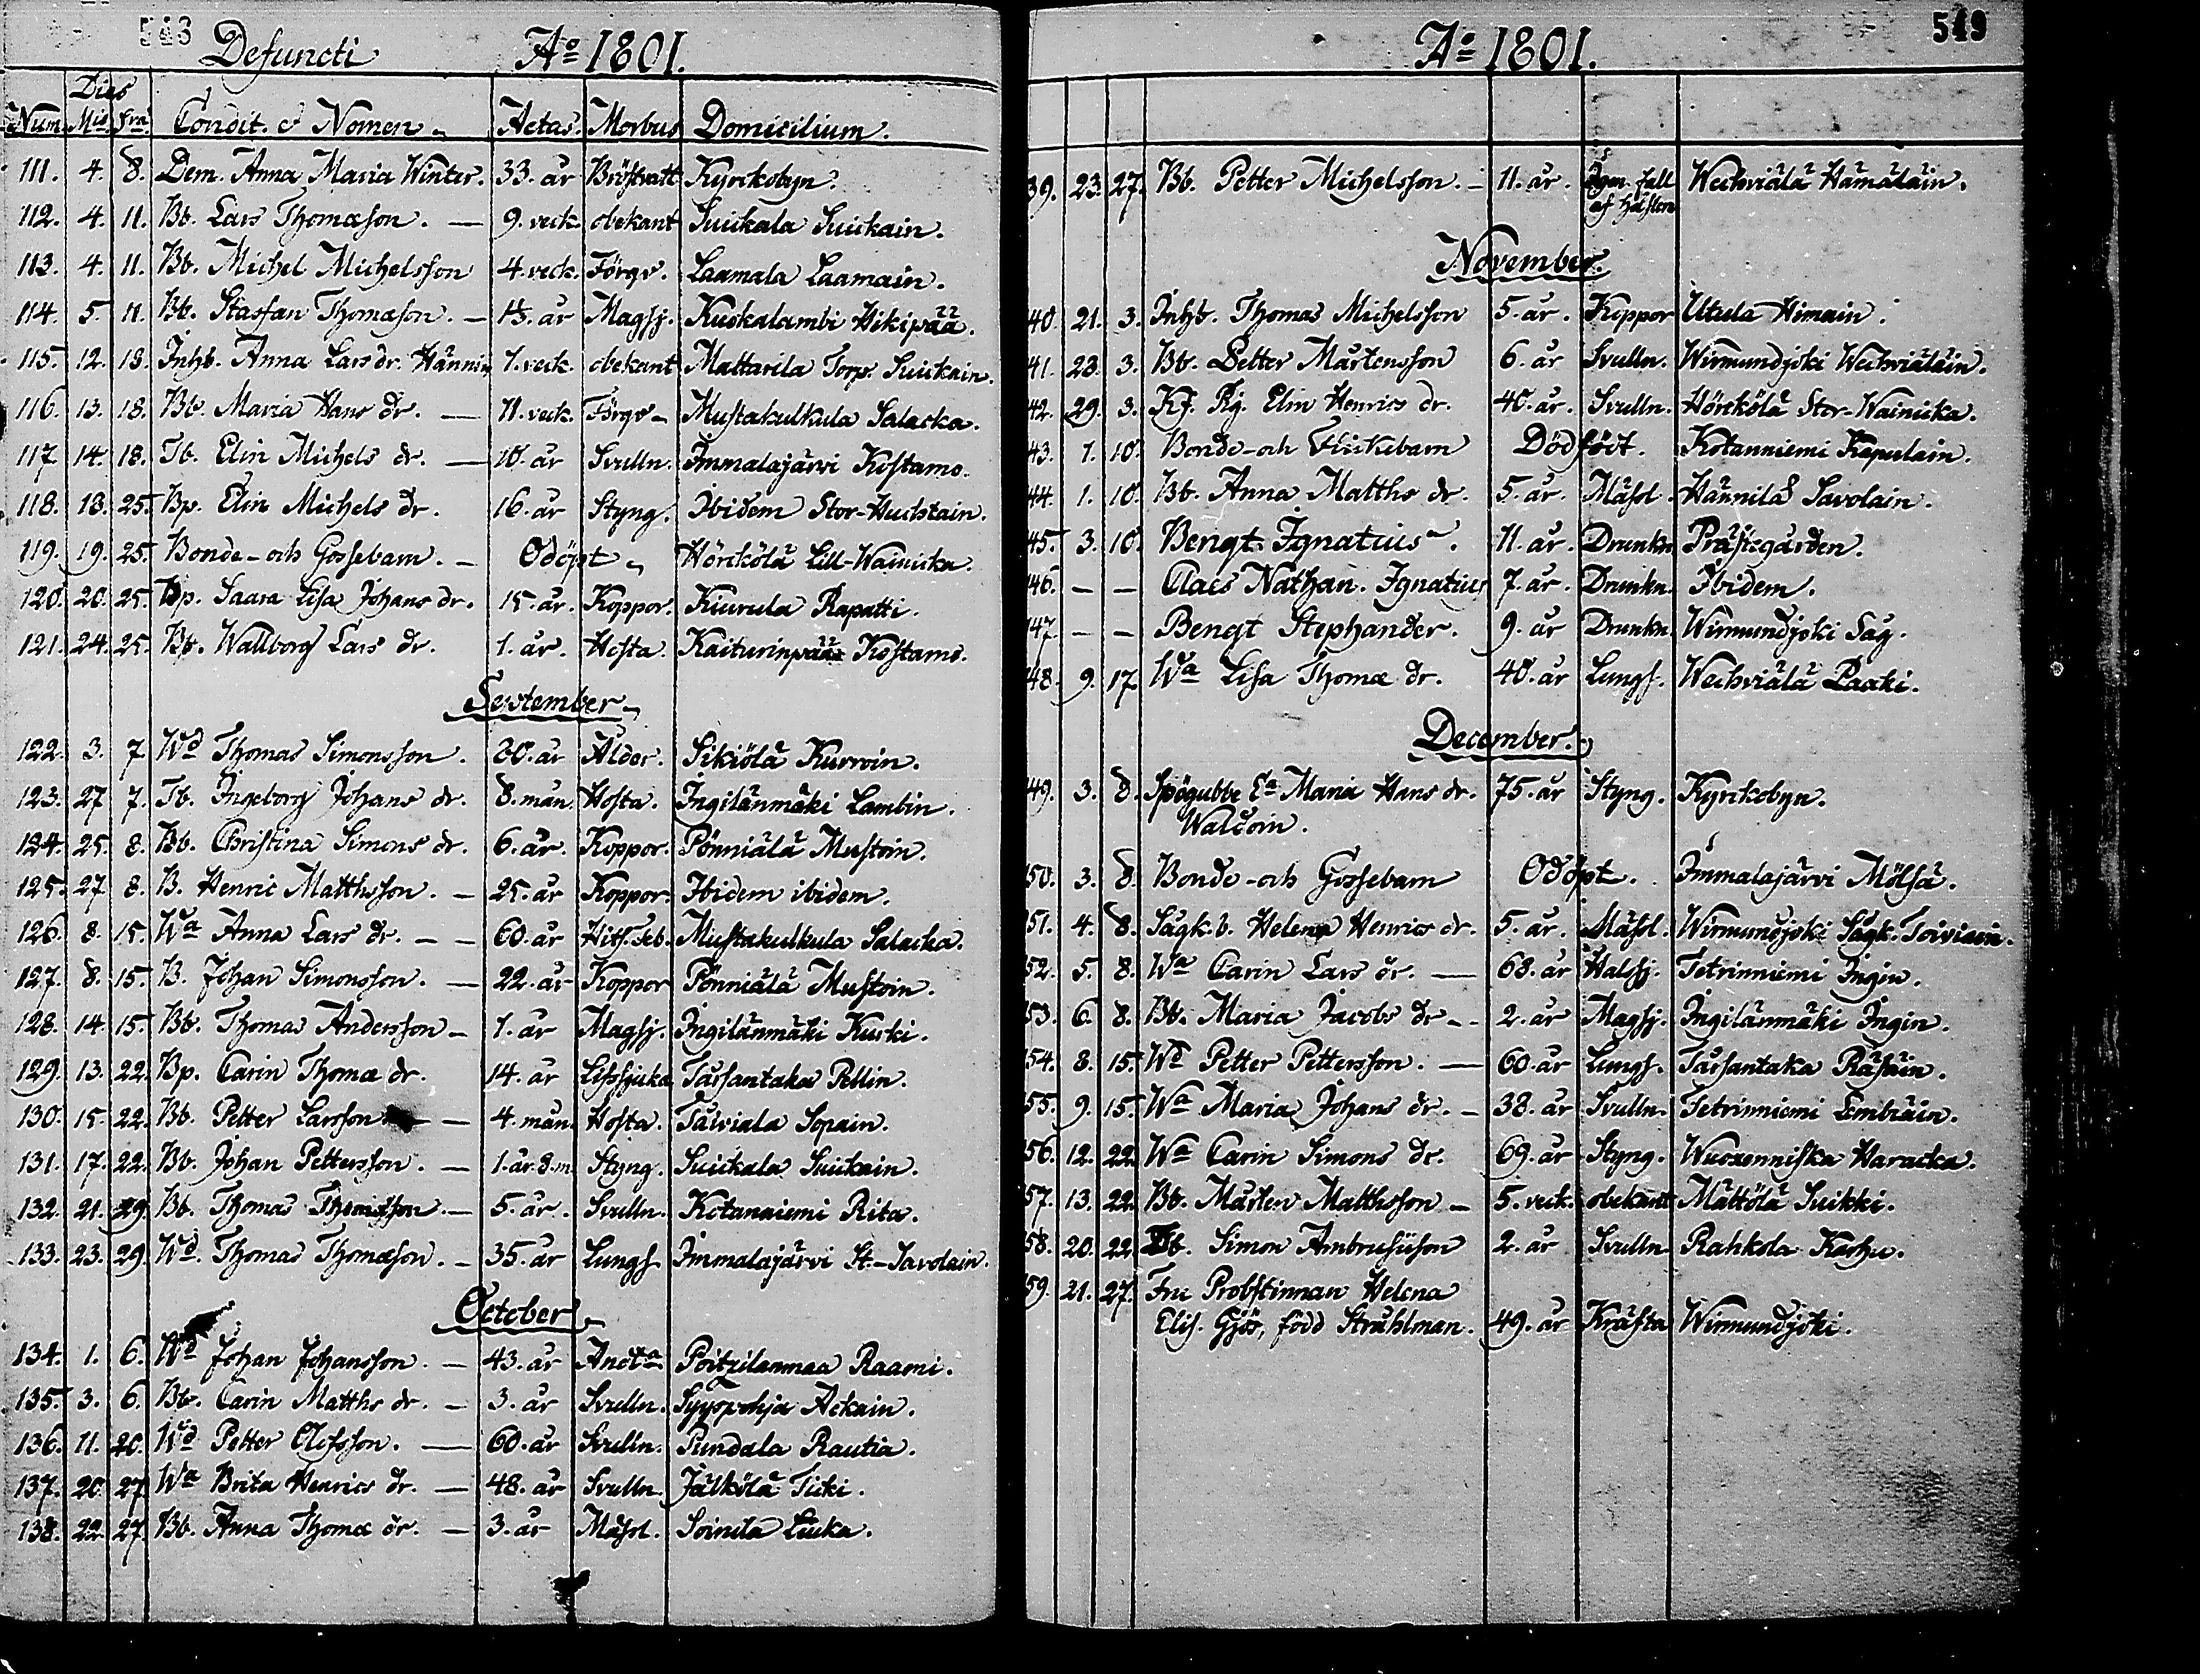 543
Defuncti Aº 1801.
Dies
Num Mis fra Condit. & Nomen Aetas Morbus Domicilium.
111. 4. 8. Dem. Anna Maria Winter. 33. år Bröstvatt Kyrckobyn.
112. 4. 11. Bb. Lars Thomæson. — 9. veck obekant Suickala Suickain.
113. 4. 11. Bb. Michel Michelsson 4. veck. Förgv. Laamala Laamain.
114. 5. 11. Bb. Staffan Thomæson. — 1½. år Magsj. Kuokalambi Hikipää.
115. 12. 18. Inhb. Anna Lars dr. Hännin 1. veck. obekant Mattarila Torp. Suickain.
116. 13. 18. Bb. Maria Hans dr. — 11. veck. Förgv. Mustakulkula Salacka.
117. 14. 18. Tb. Elin Michels dr. — 10. år Svulln. Immalajärvi Kostamo.
118. 18. 25. Bp. Elin Michels dr. 16. år Styng. Ibidem Stor-Huchtain.
119. 19. 25. Bonde-och Gossebarn. — Odöpt Hörckölä Lill-Wainicka.
120. 20. 25. Bp. Saara Lisa Johans dr. 15. år. Koppor. Kiurula Rapatti.
121. 24. 25. Bb. Wallborg Lars dr. 1. år. Hosta. Kaiturinpää Kostamo.
September
122. 3. 7 Wd Thomas Simonsson. 80. år Ålder. Sikiölä Kurvoin.
123. 27 7. Tb. Ingeborg Johans dr. 8. mån. Hosta. Ingilänmäki Lambin.
124. 25. 8. Bb. Christina Simons dr. 6. år. Koppor. Pönniälä Mustoin.
125. 27 8. B. Henric Matthsson. — 25. år Koppor. Ibidem ibidem.
126. 8. 15. Wa Anna Lars dr. — — 60. år Hits. feb. Mustakulkula Salacka.
127. 8. 15. B. Johan Simonsson. — 22. år Koppor Pönniälä Mustoin.
128. 14. 15. Bb. Thomas Andersson — 1. år Magsj. Ingilänmäki Kurki.
129. 13. 22. Bp. Carin Thomæ dr. 14. år Tarsantaka Pellin.
130. 15. 22. Bb. Petter Larsson — 4. mån. Hosta. Täiviala Sopain.
131. 17. 22. Bb. Johan Pettersson. — 1. år. 8. m. Styng. Suickala Suickain.
132. 21. 29. Bb. Thomas Thomasson. — 5. år. Svulln. Kotananiemi Rita.
133. 23. 29. Wd. Thomas Thomæson. — 35. år Lungs. Immalajärvi St.-Savolain.
October
134. 1. 6. Wd Johan Johansson. — 43. år Poitzilanmaa Raami.
135. 3. 6. Bb. Carin Matths dr. — 3. år Svulln. Syyspohja Ackain.
136. 11. 20. Wd Petter Olofsson. — 60. år Svulln. Pundala Rautia.
137. 20. 27. Wa Brita Henrics dr. — 48. år Svulln. Jälkölä Ticki.
138. 22. 27. Bb. Anna Thomæ dr. — 3. år Mässl. Soinila Liuka.
549
Aº 1801.
39. 23. 27. Bb. Petter Michelsson. — 11. år. fall Weckviälä Hämäläin.
af hästen
November.
40. 21. 3. Inhb. Thomas Michelsson 5. år. Koppor Utula Himain.
41. 23. 3. Bb. Petter Mårtensson 6. år Svulln. Wirmundjoki Weckviäläin.
42. 29. 3. Kf. Pig. Elin Henrics dr. 40. år. Svulln. Hörckölä Stor-Wainicka.
43. 1. 10. Bonde-och Flickebarn Dödfödt. Kotanniemi Kapulain.
44. 1. 10. Bb. Anna Matths dr. 5. år. Mässl. Hännilä Savolain.
45. 3. 10. Bengt Ignatius. 11. år. Drunkn. Prästegården.
46. — — Claes Nathan. Ignatius 7. år. Drunkn. Ibidem.
47 — — Bengt Stephander. 9. år Drunkn. Wirmundjoki Såg.
48. 9. 17. Wa Lisa Thomæ dr. 40. år Lungs. Weckviälä Paaki.
December.
49. 3. 8. Spögubbe Ea Maria Hans dr. 75. år Styng. Kyrckobyn.
Waldoin.
150. 3. 8. Bonde-och Gossebarn Odöpt. Immalajärvi Mölsä.
151. 4. 8. Sågk. b. Helena Henrics dr. 5. år. Mässl. Wirmundjoki Sågk. Toiviain.
52. 5. 8. Wa Carin Lars dr. — 68. år Halssj. Tetrinniemi Ingin.
53. 6. 8. Bb. Maria Jacobs dr — 2. år Magsj. Ingilänmäki Ingin.
154. 8. 15. Wd Petter Pettersson. — 60. år Lungs. Tarsantaka Räsäin.
55. 9. 15. Wa Maria Johans dr. — 38. år Svulln. Tetrinniemi Lembiäin.
156. 12. 22. Wa Carin Simons dr. 69. år Styng. Wuoxenniska Haracka.
57. 13. 22. Bb. Mårten Matthsson — 5. veck. obekant Mättölä Suikki.
58. 20. 22. Bb. Simon Ambrusiison 2. år Svulln. Rahkola Karhu.
59. 21. 27. Fru Probstinnan Helena
Elis. Gjös, född Stråhlman. 49. år Kräfta Wirmundjoki.